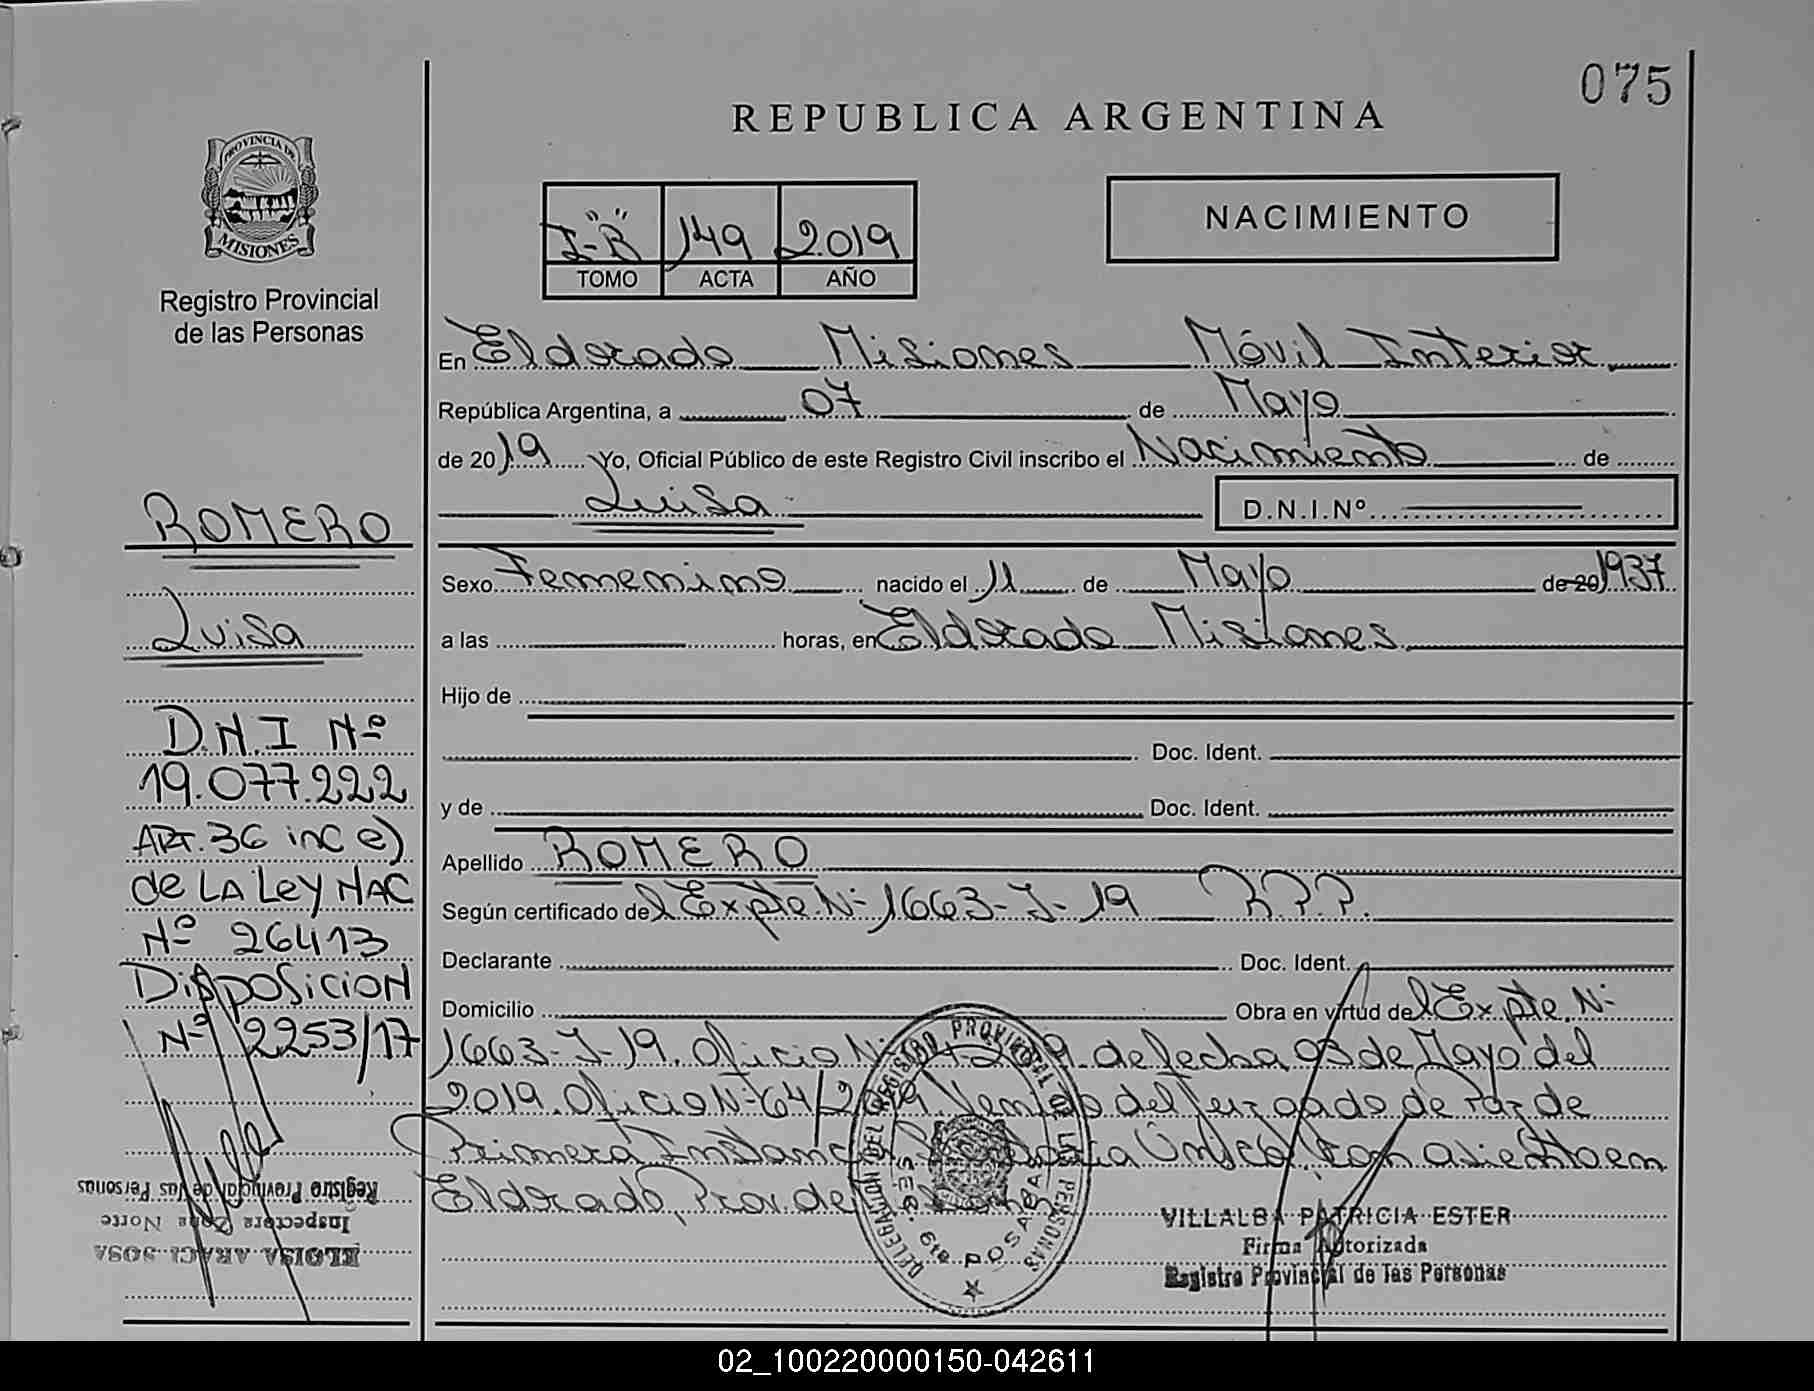 075
REPUBLICA ARGENTINA
PROVINCIA DE
MISIONES
Registro Provincial
de las Personas
I-"B" 149 2.019
TOMO ACTA AÑO
NACIMIENTO
En Eldorado Misiones Móvil Interior
República Argentina, a 07 de Mayo
de 2019 Yo, Oficial Público de este Registro Civil inscribo el Nacimiento de
Luisa
D.N.I.Nº
Sexo Femenino nacido el 11 de Mayo de 20 1937
a las horas, en Eldorado Misiones
Hijo de
Doc. Ident.
y de Doc. Ident.
Apellido ROMERO
Según certificado del Expte. Nº 1663-J-19 R.P.P.
Declarante Doc. Ident.
Domicilio Obra en virtud del Expte. Nº
1663-J-19. Oficio Nº de fecha 03 de Mayo del
2.019. Oficio Nº 64/ del Juzgado de Paz de
Primera Única con asiento en
Eldorado, Prov. de
ROMERO
Luisa
D.N.I Nº
19.077.222
ART. 36 inc e)
de LA Ley NAC
Nº 26413
DisposiciON
Nº 2253/17
ELOISA ARACI SOSA
Inspectora Zona Norte
Registro Provincial de las Personas
DELEGACION DEL REGISTRO PROVINCIAL DE LAS PERSONAS
SEC. 6ta POSADAS
VILLALBA PATRICIA ESTER
Firma Autorizada
Registro Provincial de las Personas
02_100220000150-042611